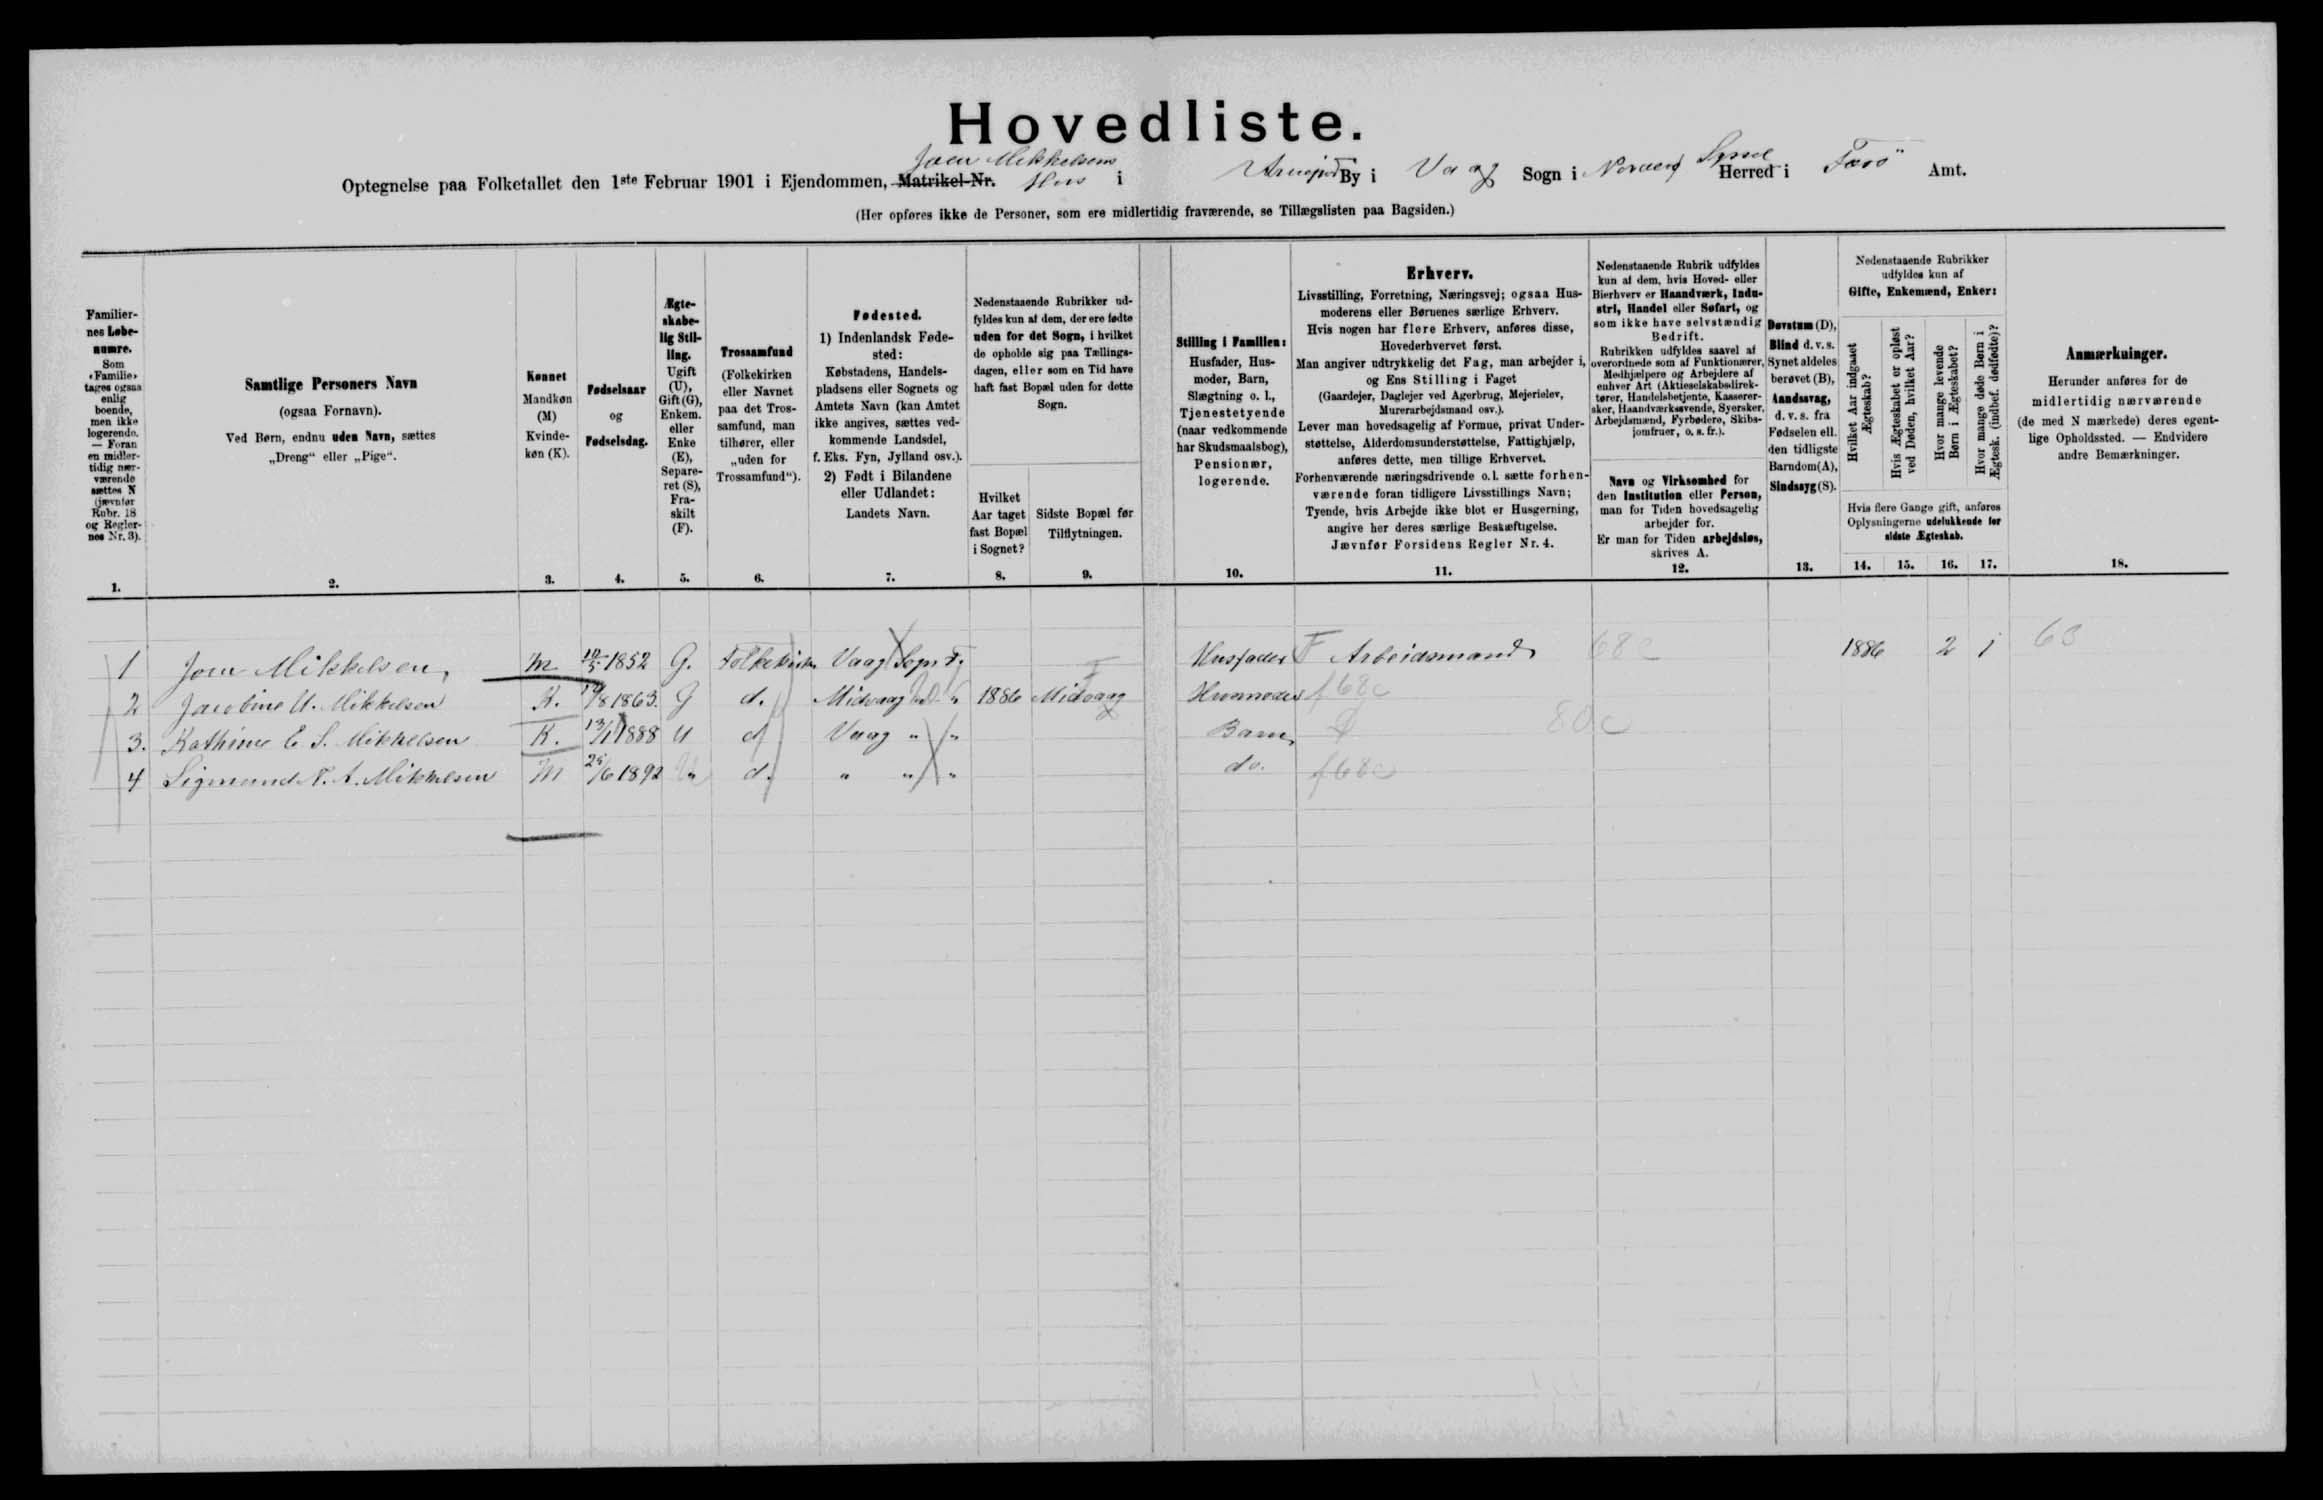 Hovedliste.
Joen Mikkelsens Syssel
Optegnelse paa Folketallet den 1ste Februar 1901 i Ejendommen, Matrikel-Nr. Hus i By i Vaag Sogn i Herred i Færö Amt.
(Her opføres ikke de Personer, som ere midlertidig fraværende, se Tillægslisten paa Bagsiden.)
Familier-
nes Løbe-
numre.
Som
«Familie»
tages ogsaa
enlig
boende,
men ikke
logerende.
— Foran
en midler-
tidig nær-
værende
sættes N
(jævnfør
Rubr. 18
og Regler-
nes Nr. 3).
1.
Samtlige Personers Navn
(ogsaa Fornavn).
Ved Børn, endnu uden Navn, sættes
„Dreng“ eller „Pige“.
2.
Kønnet
Mandkøn
(M)
Kvinde-
køn (K).
3.
Fødselsaar
og
Fødselsdag.
4.
Ægte-
skabe-
lig Stil-
ling.
Ugift
(U),
Gift (G),
Enkem.
eller
Enke
(E),
Separe-
ret (S),
Fra-
skilt
(F).
5.
Trossamfund
(Folkekirken
eller Navnet
paa det Tros-
samfund, man
tilhører, eller
„uden for
Trossamfund“).
6.
Fødested.
1) Indenlandsk Føde-
sted:
Købstadens, Handels-
pladsens eller Sognets og
Amtets Navn (kan Amtet
ikke angives, sættes ved-
kommende Landsdel,
f. Eks. Fyn, Jylland osv.).
2) Født i Bilandene
eller Udlandet:
Landets Navn.
7.
Nedenstaaende Rubrikker ud-
fyldes kun af dem, der ere fødte
uden for det Sogn, i hvilket
de opholde sig paa Tællings-
dagen, eller som en Tid have
haft fast Bopæl uden for dette
Sogn.
Hvilket
Aar taget
fast Bopæl
i Sognet?
8.
Sidste Bopæl før
Tilflytningen.
9.
Stilling i Familien:
Husfader, Hus-
moder, Barn,
Slægtning o. l.,
Tjenestetyende
(naar vedkommende
har Skudsmaalsbog),
Pensionær,
logerende.
10.
Erhverv.
Livsstilling, Forretning, Næringsvej; ogsaa Hus-
moderens eller Børnenes særlige Erhverv.
Hvis nogen har flere Erhverv, anføres disse,
Hovederhvervet først.
Man angiver udtrykkelig det Fag, man arbejder i,
og Ens Stilling i Faget
(Gaardejer, Daglejer ved Agerbrug, Mejerielev,
Murerarbejdsmand osv.).
Lever man hovedsagelig af Formue, privat Under-
støttelse, Alderdomsunderstøttelse, Fattighjælp,
anføres dette, men tillige Erhvervet.
Forhenværende næringsdrivende o. l. sætte forhen-
værende foran tidligere Livsstillings Navn;
Tyende, hvis Arbejde ikke blot er Husgerning,
angive her deres særlige Beskæftigelse.
Jævnfør Forsidens Regler Nr. 4.
11.
Nedenstaaende Rubrik udfyldes
kun af dem, hvis Hoved- eller
Bierhverv er Haandværk, Indu-
stri, Handel eller Søfart, og
som ikke have selvstændig
Bedrift.
Rubrikken udfyldes saavel af
overordnede som af Funktionærer,
Medhjælpere og Arbejdere af
enhver Art (Aktieselskabsdirek-
tører, Handelsbetjente, Kasserer-
sker, Haandværkssvende, Syersker,
Arbejdsmænd, Fyrbødere, Skibs-
jomfruer, o. s. fr.).
Navn og Virksomhed for
den Institution eller Person,
man for Tiden hovedsagelig
arbejder for.
Er man for Tiden arbejdsløs,
skrives A.
12.
Døvstum (D),
Blind d. v. s.
Synet aldeles
berøvet (B),
Aandssvag,
d. v. s. fra
Fødselen ell.
den tidligste
Barndom (A),
Sindssyg (S).
13.
Nedenstaaende Rubrikker
udfyldes kun af
Gifte, Enkemænd, Enker:
Hvilket Aar indgaaet
Ægteskab?
Hvis Ægteskabet er opløst
ved Døden, hvilket Aar?
Hvor mange levende
Børn i Ægteskabet?
Hvor mange døde Børn i
Ægtesk. (indbef. dødfødte)?
Hvis flere Gange gift, anføres
Oplysningerne udelukkende for
sidste Ægteskab.
14. 15. 16. 17.
Anmærkninger.
Herunder anføres for de
midlertidig nærværende
(de med N mærkede) deres egent-
lige Opholdssted. — Endvidere
andre Bemærkninger.
18.
1 Joen Mikkelsen, M 10/5 1852 G. Folkekirken Vaag Sogn F. Husfader F Arbeidsmand 68c 1886 2 1 63
2 Jacobine M. Mikkelsen K. 1863. G d. Midvaag " 1886 Midvaag Husmoder f68c
3. Kathrine E. S. Mikkelsen K. 13/1 1888 U d Vaag " " Barn 80c
4 Sigmund A. Mikkelsen M 25/6 1892 " d. " " " do. f68c